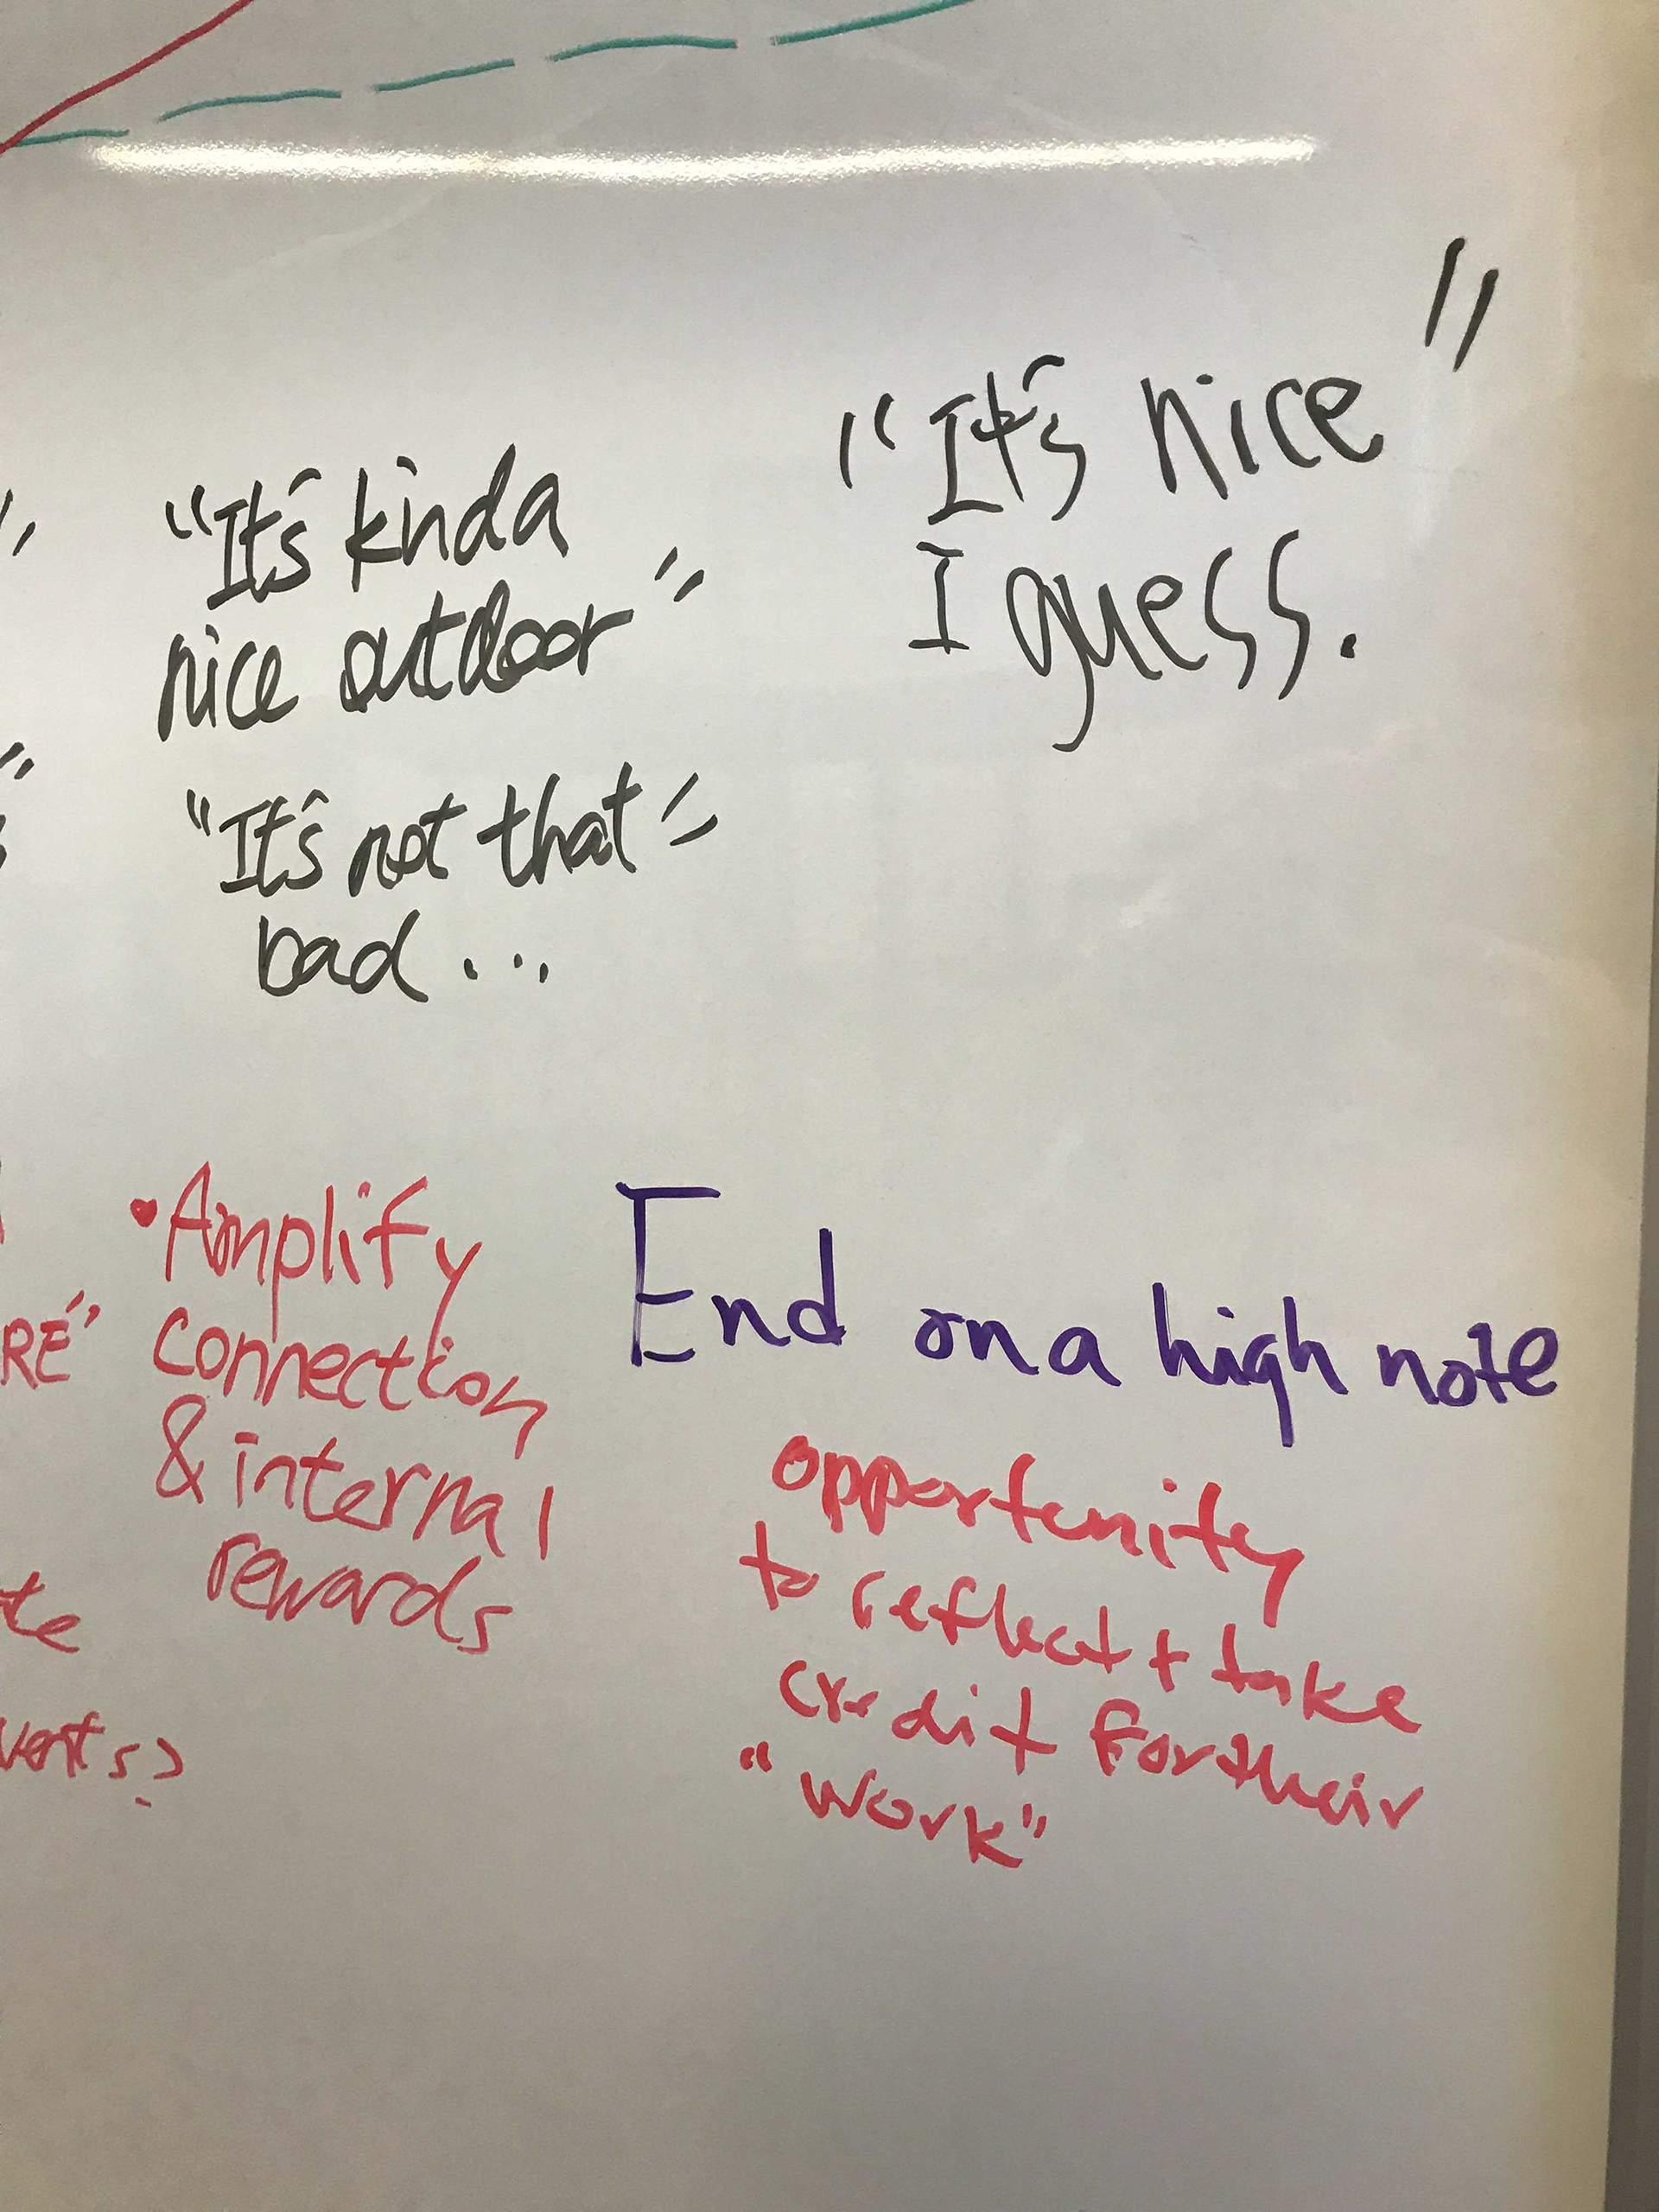 "It's kinda
nice outdoor"
"It's not that"
bad...
"It's nice"
I guess.
RE"
• Amplify
connection
& internal
rewards
End on a high note
opportunity
to reflect + take
credit for their
"work"